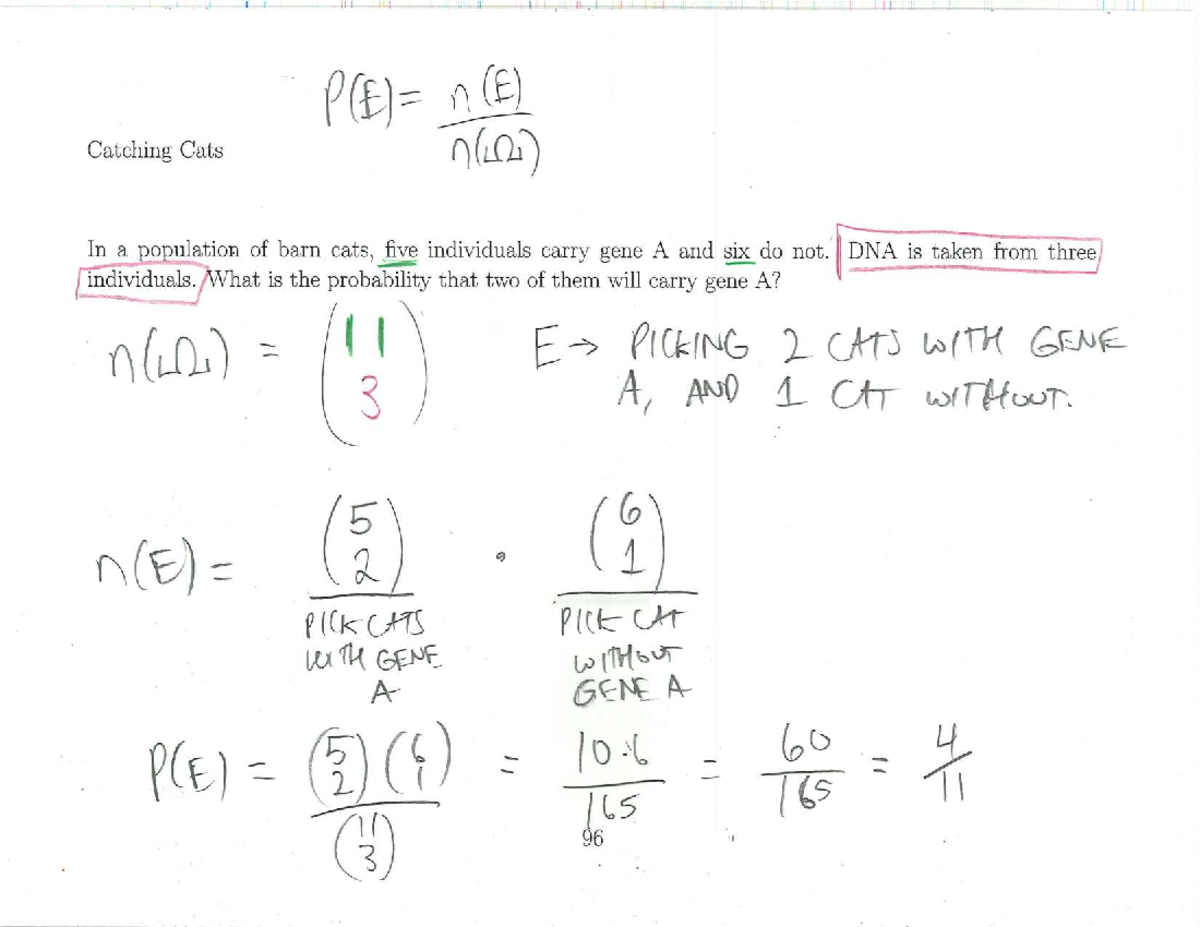 P(E) = n(E)
n(Ω)
Catching Cats
In a population of barn cats, five individuals carry gene A and six do not. DNA is taken from three
individuals. What is the probability that two of them will carry gene A?
n(Ω) = (11
3)
E → PICKING 2 CATS WITH GENE
A, AND 1 CAT WITHOUT.
n(E) = (5
2) · (6
1)
PICK CATS
WITH GENE
A
PICK CAT
WITHOUT
GENE A
P(E) = (5 2)(6 1) = 10·6 = 60 = 4
(11 3) 165 165 11
96